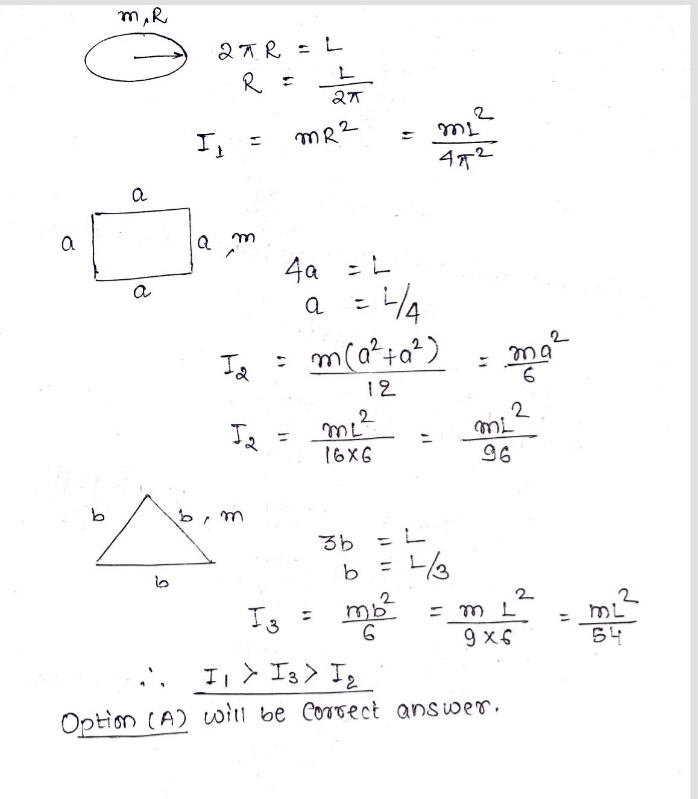 m, R
2πR = L
R = L/2π
I₁ = mR² = mL²/4π²
a
a a, m
a
4a = L
a = L/4
I₂ = m(a²+a²)/12 = ma²/6
I₂ = mL²/16×6 = mL²/96
b b, m
b
3b = L
b = L/3
I₃ = mb²/6 = m L²/9×6 = mL²/54
∴ I₁ > I₃ > I₂
Option (A) will be correct answer.